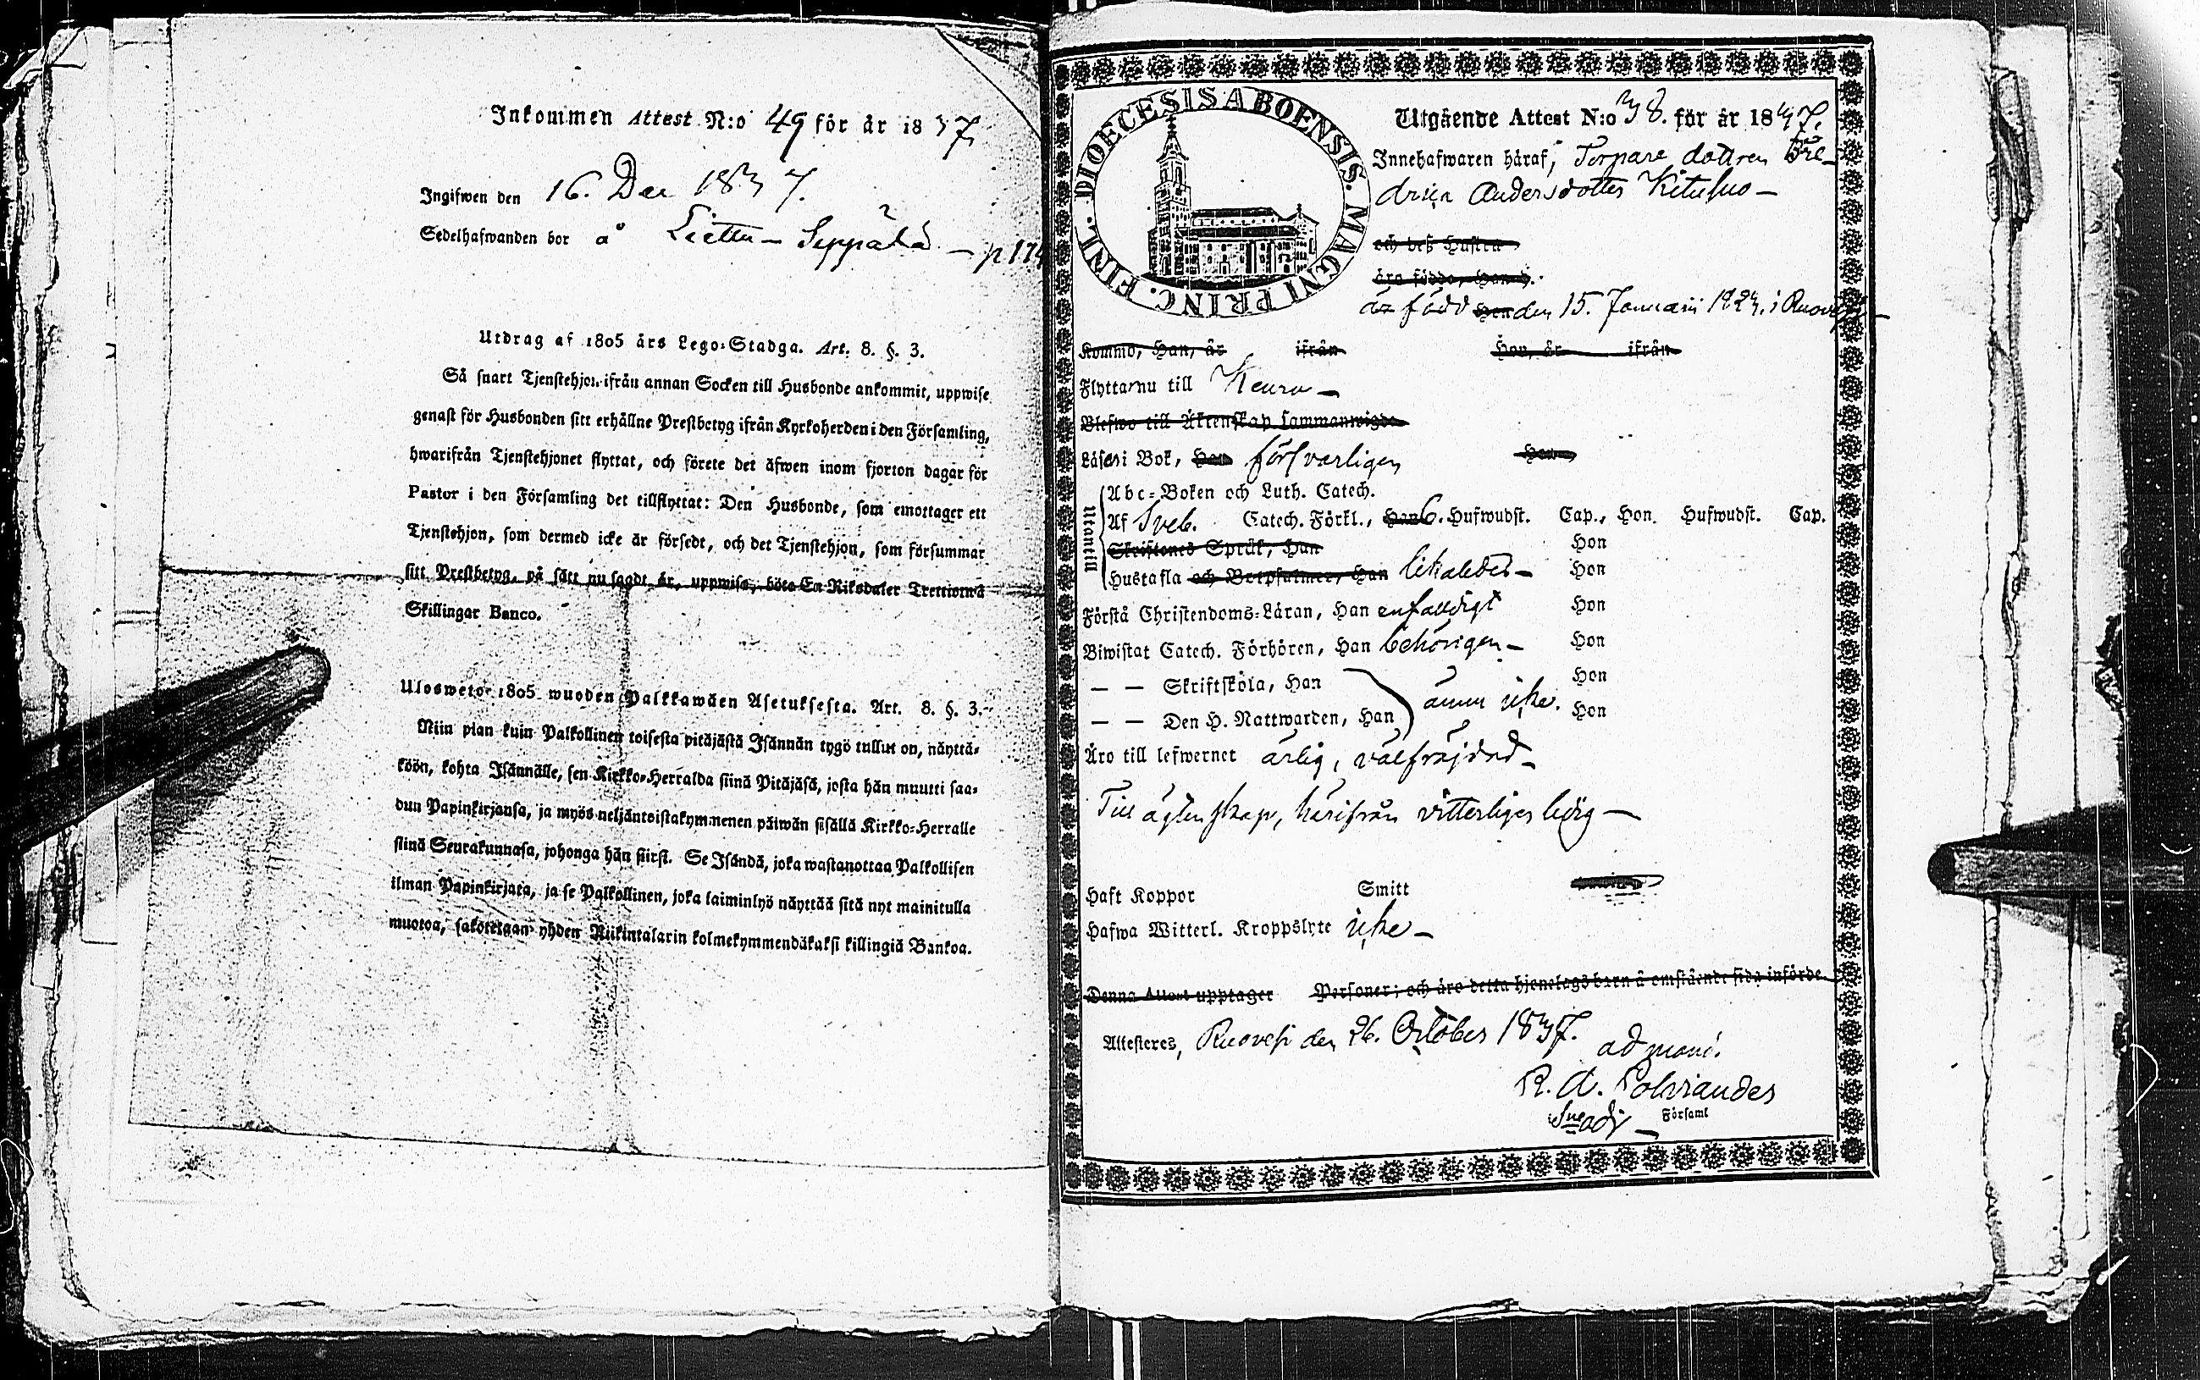 Inkommen Attest N:o 49 för år 1837
Ingifwen den 16. Dec 1837.
Sedelhafwanden bor å Liettu – Seppälä – p 174
Utdrag af 1805 års Lego-Stadga. Art. 8. §. 3.
Så snart Tjenstehjon ifrån annan Socken till Husbonde ankommit, uppwise
genast för Husbonden sitt erhållne Prestbetyg ifrån Kyrkoherden i den Församling,
hwarifrån Tjenstehjonet flyttat, och förete det äfwen inom fjorton dagar för
Pastor i den Församling det tillflyttat: Den Husbonde, som emottager ett
Tjenstehjon, som dermed icke är försedt, och det Tjenstehjon, som försummar
sitt Prestbetyg, på sätt nu sagdt är, uppwisa, böte En Riksdaler Trettiotwå
Skillingar Banco.
Uloswetos 1805 wuoden Palkkawäen Asetuksesta. Art. 8. §. 3.
Niin pian kuin Palkollinen toisesta pitäjästä Isännän tygö tullut on, näyttä-
köön, kohta Isännälle, sen Kirkko-Herralda siinä Pitäjäsä, josta hän muutti saa-
dun Papinkirjansa, ja myös neljäntoistakymmenen päiwän sisällä Kirkko-Herralle
siinä Seurakunnasa, johonga hän siirsi. Se Isändä, joka wastanottaa Palkollisen
ilman Papinkirjata, ja se Palkollinen, joka laiminlyö näyttää sitä nyt mainitulla
muotoa, sakotetaan yhden Riikintalarin kolmekymmendäkaksi killingiä Bankoa.
DIOECESIS ABOENSIS. MAGNI PRINC. FINL.
Utgående Attest N:o 38. för år 1837.
Innehafwaren häraf, Torpare dottren Fre-
drica Andersdotter Kitusuo –
och deß Hustru
äro födde, Han d.
är född Hon den 15. Januarii 1823. i Ruovesi –
Kommo, Han, år ifrån Hon, år ifrån
Flyttar nu till Keuru –
Blefwo till Äktenskap Sammanwigde
Läser i Bok, Han försvarligen Hon
Utantill
Abc-Boken och Luth. Catech.
Af Sveb. Catech. Förkl., Han 6. Hufwudst. Cap., Hon Hufwudst. Cap.
Skriftenes Språk, Han Hon
Hustafla och Botpsalmer, Han likaledes – Hon
Förstå Christendoms-Läran, Han enfaldigt Hon
Biwistat Catech. Förhören, Han behörigen – Hon
— — Skriftskola, Han ännu icke. Hon
— — Den H. Nattwarden, Han Hon
Äro till lefwernet ärlig, välfräjdad –
Till ägtenskap, härifrån vitterligen ledig –
Haft Koppor Smitt
Hafwa Witterl. Kroppslyte icke –
Denna Attest upptager Personer; och äro detta hjonelags barn å omstående sida införde.
Attesteres, Ruovesi den 26. October 1837.
R. A. Polviander
Församl